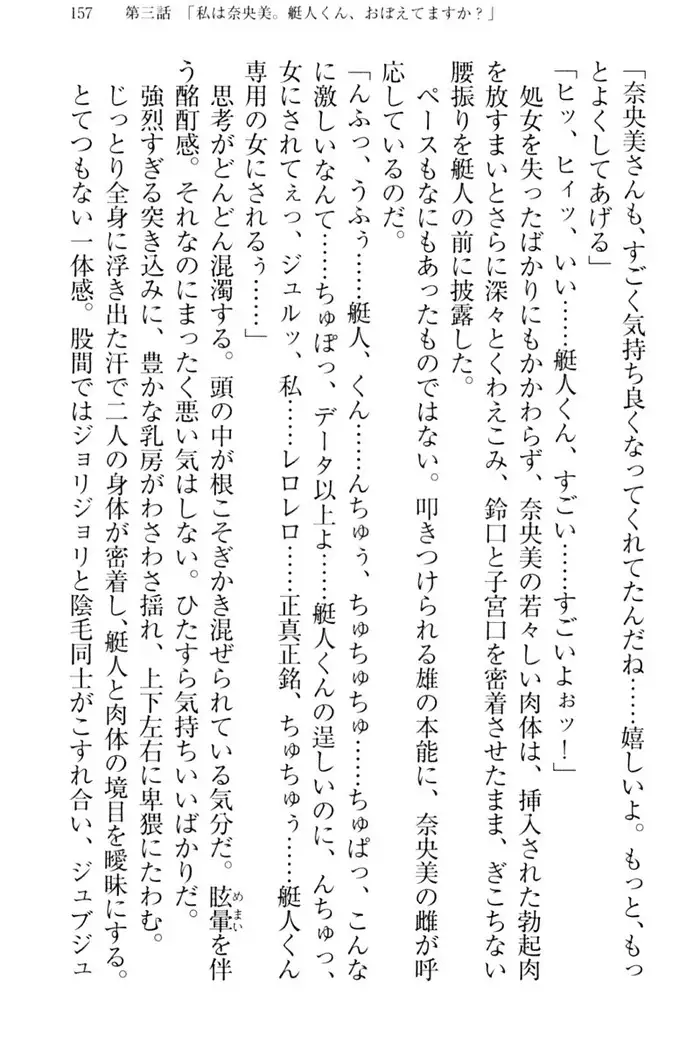 157　第三話　「私は奈央美。艇人くん、おぼえてますか？」
「奈央美さんも、すごく気持ち良くなってくれてたんだね……嬉しいよ。もっと、もっ
とよくしてあげる」
「ヒッ、ヒィッ、いい……艇人くん、すごい……すごいよぉッ！」
　処女を失ったばかりにもかかわらず、奈央美の若々しい肉体は、挿入された勃起肉
を放すまいとさらに深々とくわえこみ、鈴口と子宮口を密着させたまま、ぎこちない
腰振りを艇人の前に披露した。
　ペースもなにもあったものではない。叩きつけられる雄の本能に、奈央美の雌が呼
応しているのだ。
「んふっ、うふぅ……艇人、くん……んちゅぅ、ちゅちゅちゅ……ちゅぱっ、こんな
に激しいなんて……ちゅぽっ、データ以上よ……艇人くんの逞しいのに、んちゅっ、
女にされてぇっ、ジュルッ、私……レロレロ……正真正銘、ちゅちゅぅ……艇人くん
専用の女にされるぅ……」
　思考がどんどん混濁する。頭の中が根こそぎかき混ぜられている気分だ。眩暈（めまい）を伴
う酩酊感。それなのにまったく悪い気はしない。ひたすら気持ちいいばかりだ。
　強烈すぎる突き込みに、豊かな乳房がわさわさ揺れ、上下左右に卑猥にたわむ。
　じっとり全身に浮き出た汗で二人の身体が密着し、艇人と肉体の境目を曖昧にする。
　とてつもない一体感。股間ではジョリジョリと陰毛同士がこすれ合い、ジュブジュ